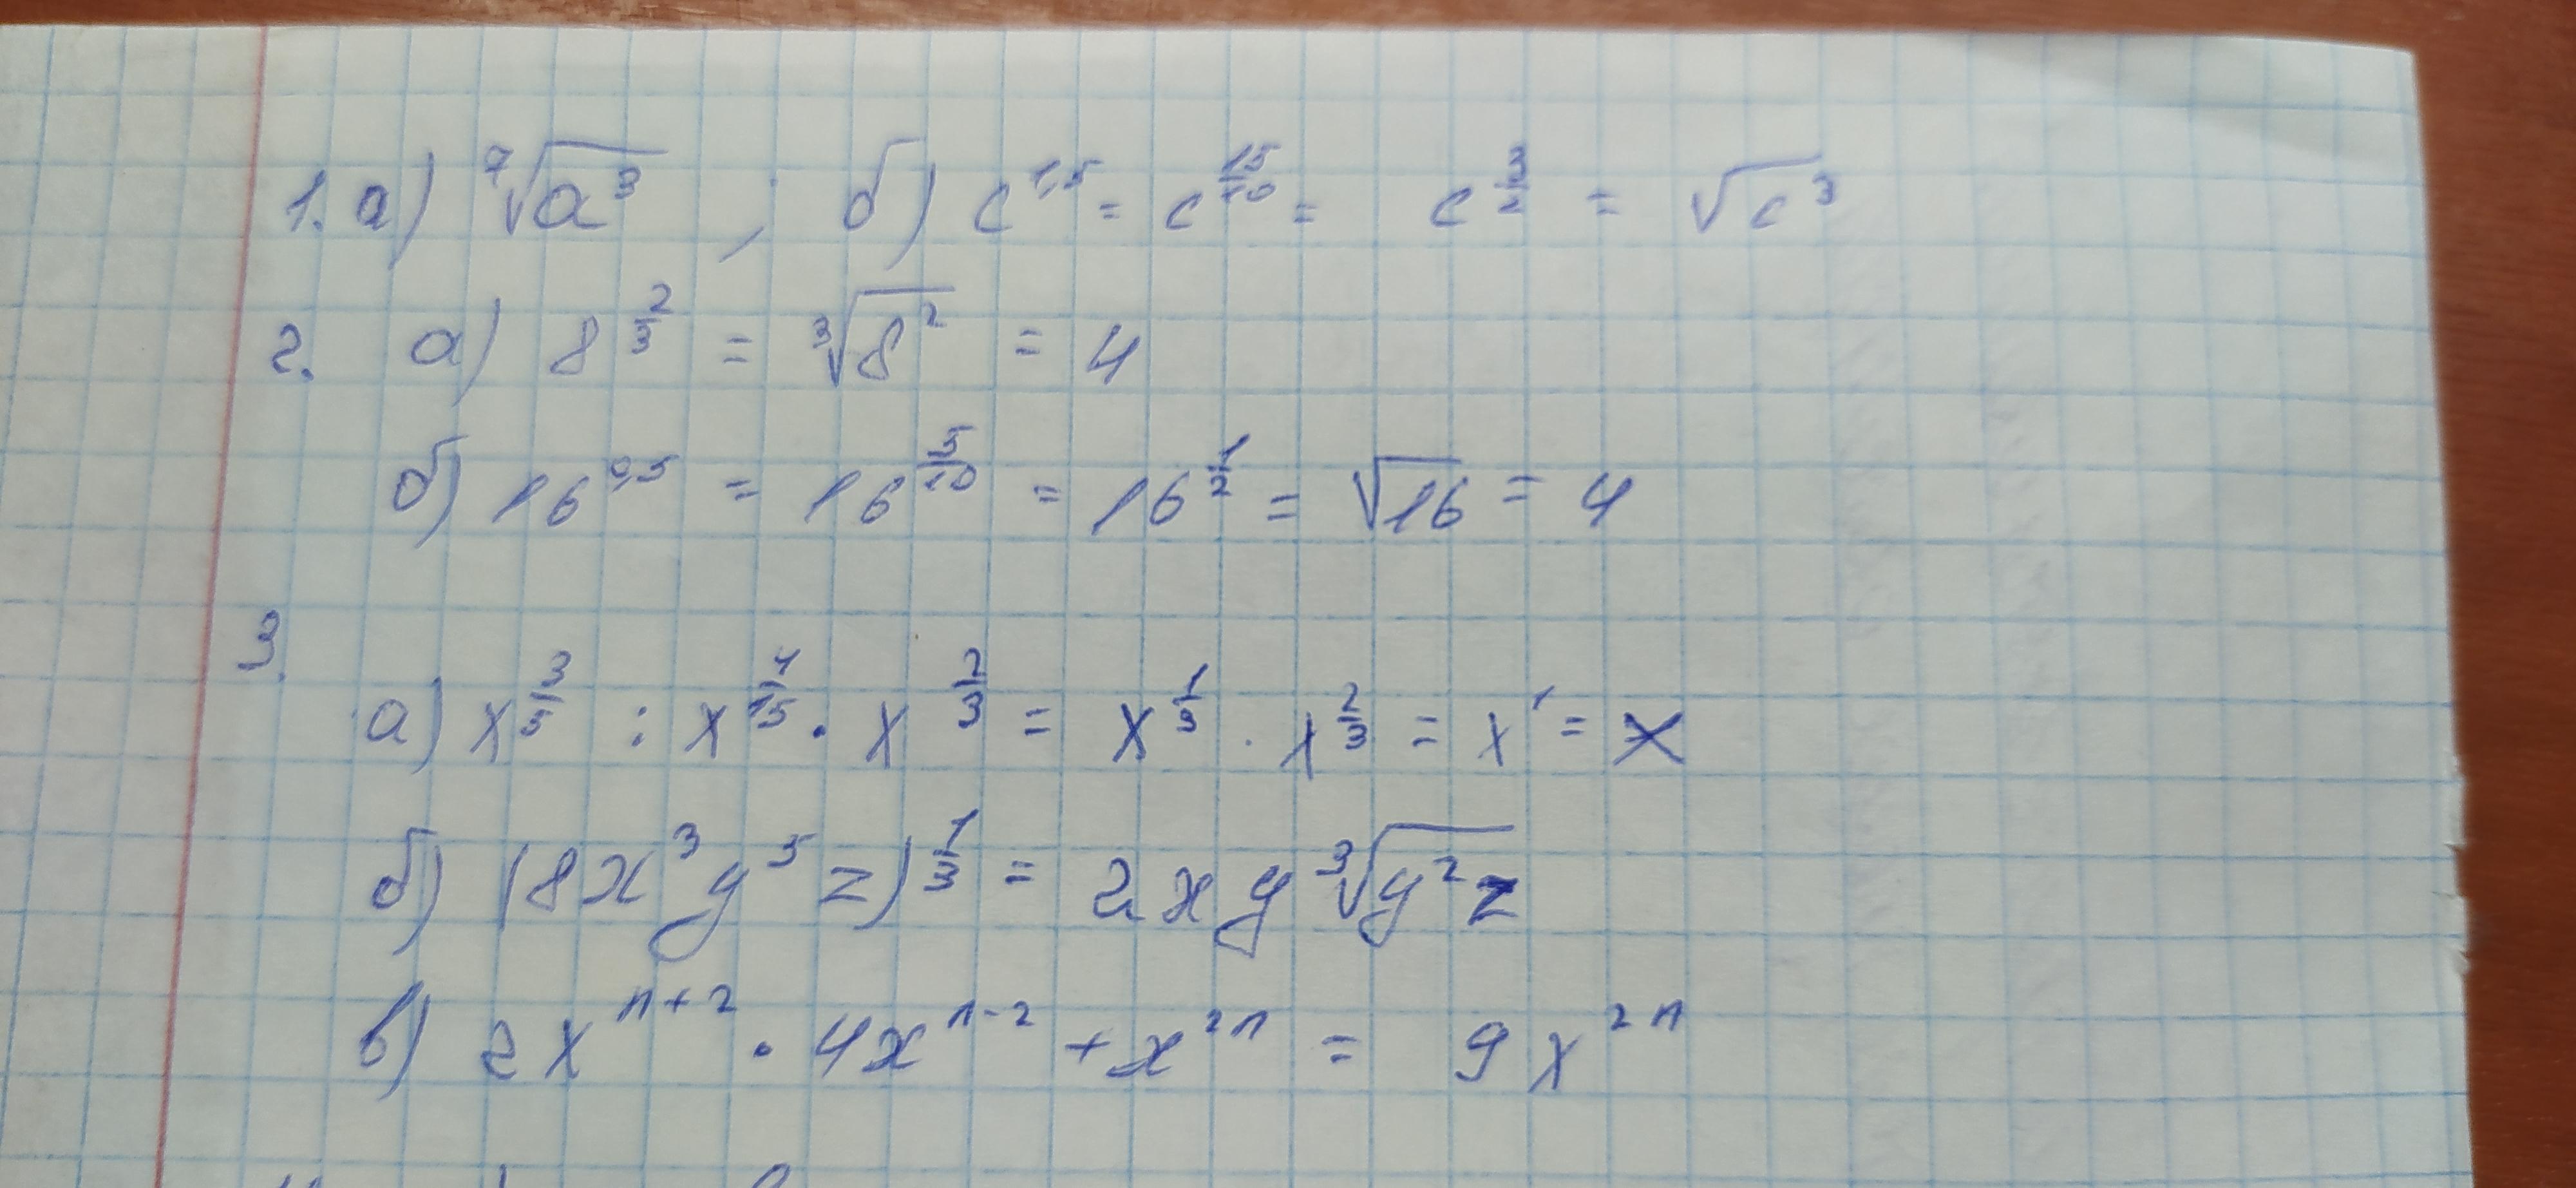 1. а) ⁷√a³ ; б) c^1,5 = c^15/10 = c^3/2 = √c³
2. а) 8^2/3 = ³√8² = 4
б) 16^0,5 = 16^5/10 = 16^1/2 = √16 = 4
3.
а) x^3/5 : x^4/15 · x^2/3 = x^1/3 · x^2/3 = x¹ = x
б) (8x³y⁵z)^1/3 = 2xy ³√y²z
в) 2x^n+2 · 4x^n-2 + x^2n = 9x^2n